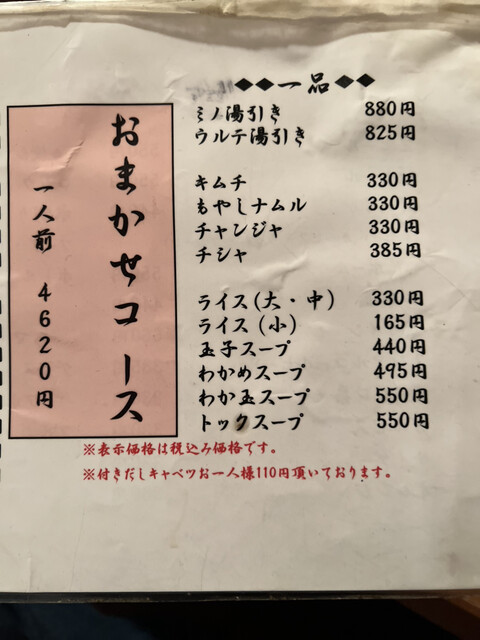 おまかせコース
一人前 4620円
◆◆一品◆◆
ミノ湯引き 880円
ウルテ湯引き 825円
キムチ 330円
もやしナムル 330円
チャンジャ 330円
チシャ 385円
ライス(大・中) 330円
ライス(小) 165円
玉子スープ 440円
わかめスープ 495円
わか玉スープ 550円
トックスープ 550円
※表示価格は税込み価格です。
※付きだしキャベツお一人様110円頂いております。